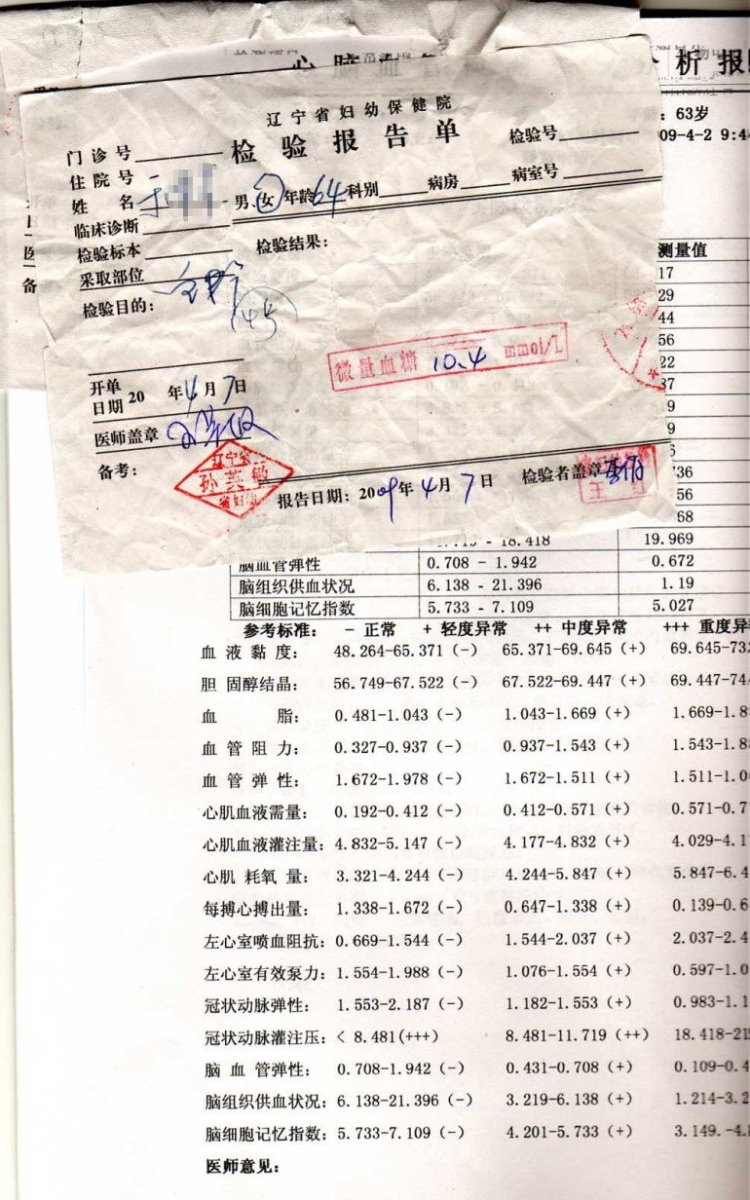 心脑血
析报
：63岁
09-4-2 9:4
辽宁省妇幼保健院
检验报告单
门诊号
检验号
住院号
姓名
男.女 年龄64 科别
病房
病室号
临床诊断
检验标本
检验结果：
采取部位
检验目的：
微量血糖 10.4 mmol/L
开单日期20 年4月7日
医师盖章
备考：
孙英敏
报告日期：2009年4月7日
检验者盖章
测量值
17
29
44
56
22
37
9
9
6
736
56
68
18.418 19.969
脑血管弹性 0.708 - 1.942 0.672
脑组织供血状况 6.138 - 21.396 1.19
脑细胞记忆指数 5.733 - 7.109 5.027
参考标准： - 正常 + 轻度异常 ++ 中度异常 +++ 重度异
血液黏度： 48.264-65.371（-） 65.371-69.645（+） 69.645-73
胆固醇结晶： 56.749-67.522（-） 67.522-69.447（+） 69.447-74
血脂： 0.481-1.043（-） 1.043-1.669（+） 1.669-1.8
血管阻力： 0.327-0.937（-） 0.937-1.543（+） 1.543-1.8
血管弹性： 1.672-1.978（-） 1.672-1.511（+） 1.511-1.0
心肌血液需量： 0.192-0.412（-） 0.412-0.571（+） 0.571-0.7
心肌血液灌注量：4.832-5.147（-） 4.177-4.832（+） 4.029-4.1
心肌耗氧量： 3.321-4.244（-） 4.244-5.847（+） 5.847-6.4
每搏心搏出量： 1.338-1.672（-） 0.647-1.338（+） 0.139-0.6
左心室喷血阻抗：0.669-1.544（-） 1.544-2.037（+） 2.037-2.4
左心室有效泵力：1.554-1.988（-） 1.076-1.554（+） 0.597-1.0
冠状动脉弹性： 1.553-2.187（-） 1.182-1.553（+） 0.983-1.1
冠状动脉灌注压：< 8.481(+++) 8.481-11.719（++） 18.418-21
脑血管弹性： 0.708-1.942（-） 0.431-0.708（+） 0.109-0.4
脑组织供血状况：6.138-21.396（-） 3.219-6.138（+） 1.214-3.2
脑细胞记忆指数：5.733-7.109（-） 4.201-5.733（+） 3.149.-4.
医师意见：